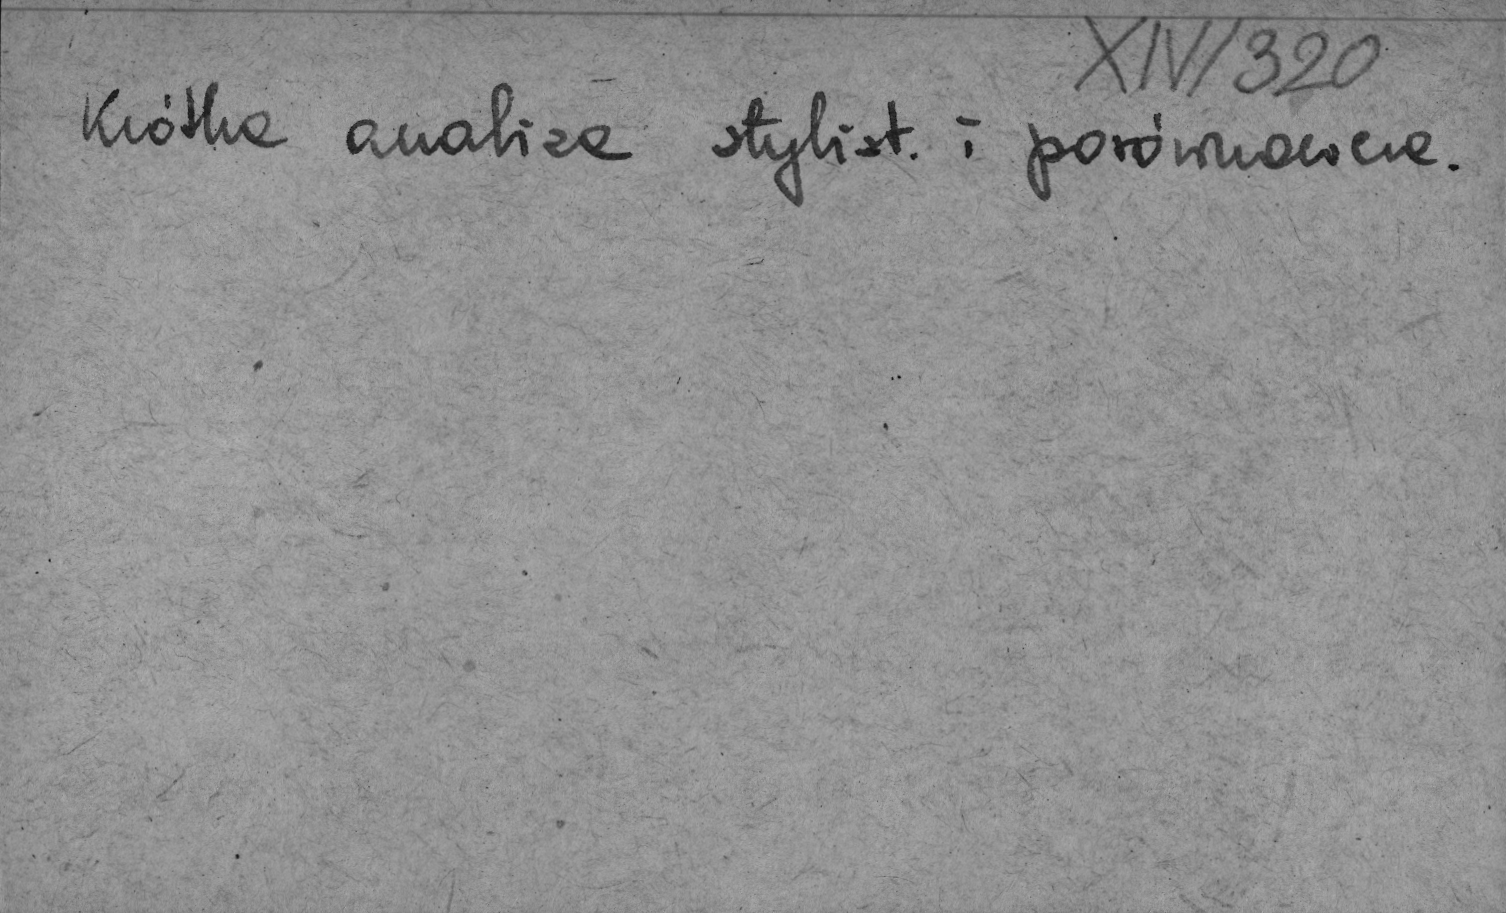 XIV/320
Krótka analiza stylist. i porównawcza.